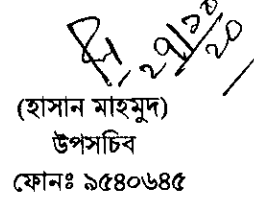 ২৭/১০/২০
(হাসান মাহমুদ)
উপসচিব
ফোনঃ ৯৫৪০৬৪৫